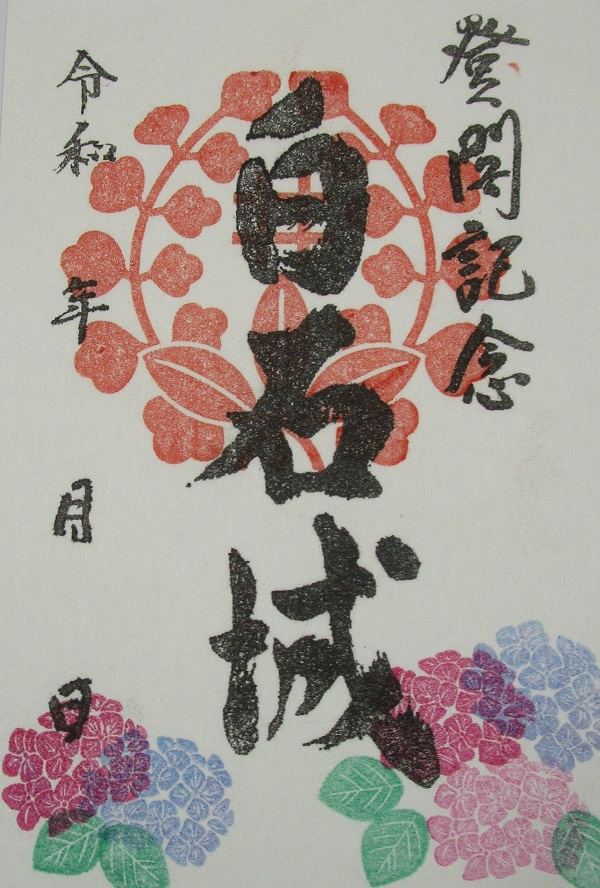 登閣記念
白石城
令和 年 月 日